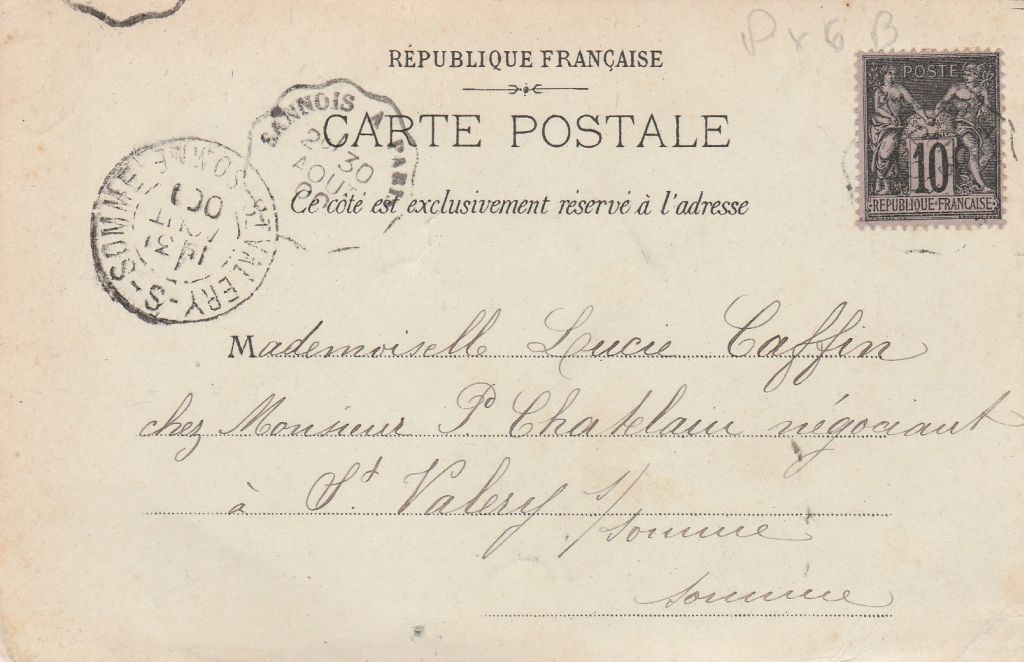 P x 6 B
RÉPUBLIQUE FRANÇAISE
CARTE POSTALE
Ce côté est exclusivement réservé à l'adresse
POSTE
10
REPUBLIQUE-FRANÇAISE
SANNOIS A PARIS
30
AOUT
00
ST VALERY-S-SOMME SOMME
31
AOUT
00
Mademoiselle Lucie Caffin
chez Monsieur P. Chatelain négociant
à St. Valery s/somme
somme